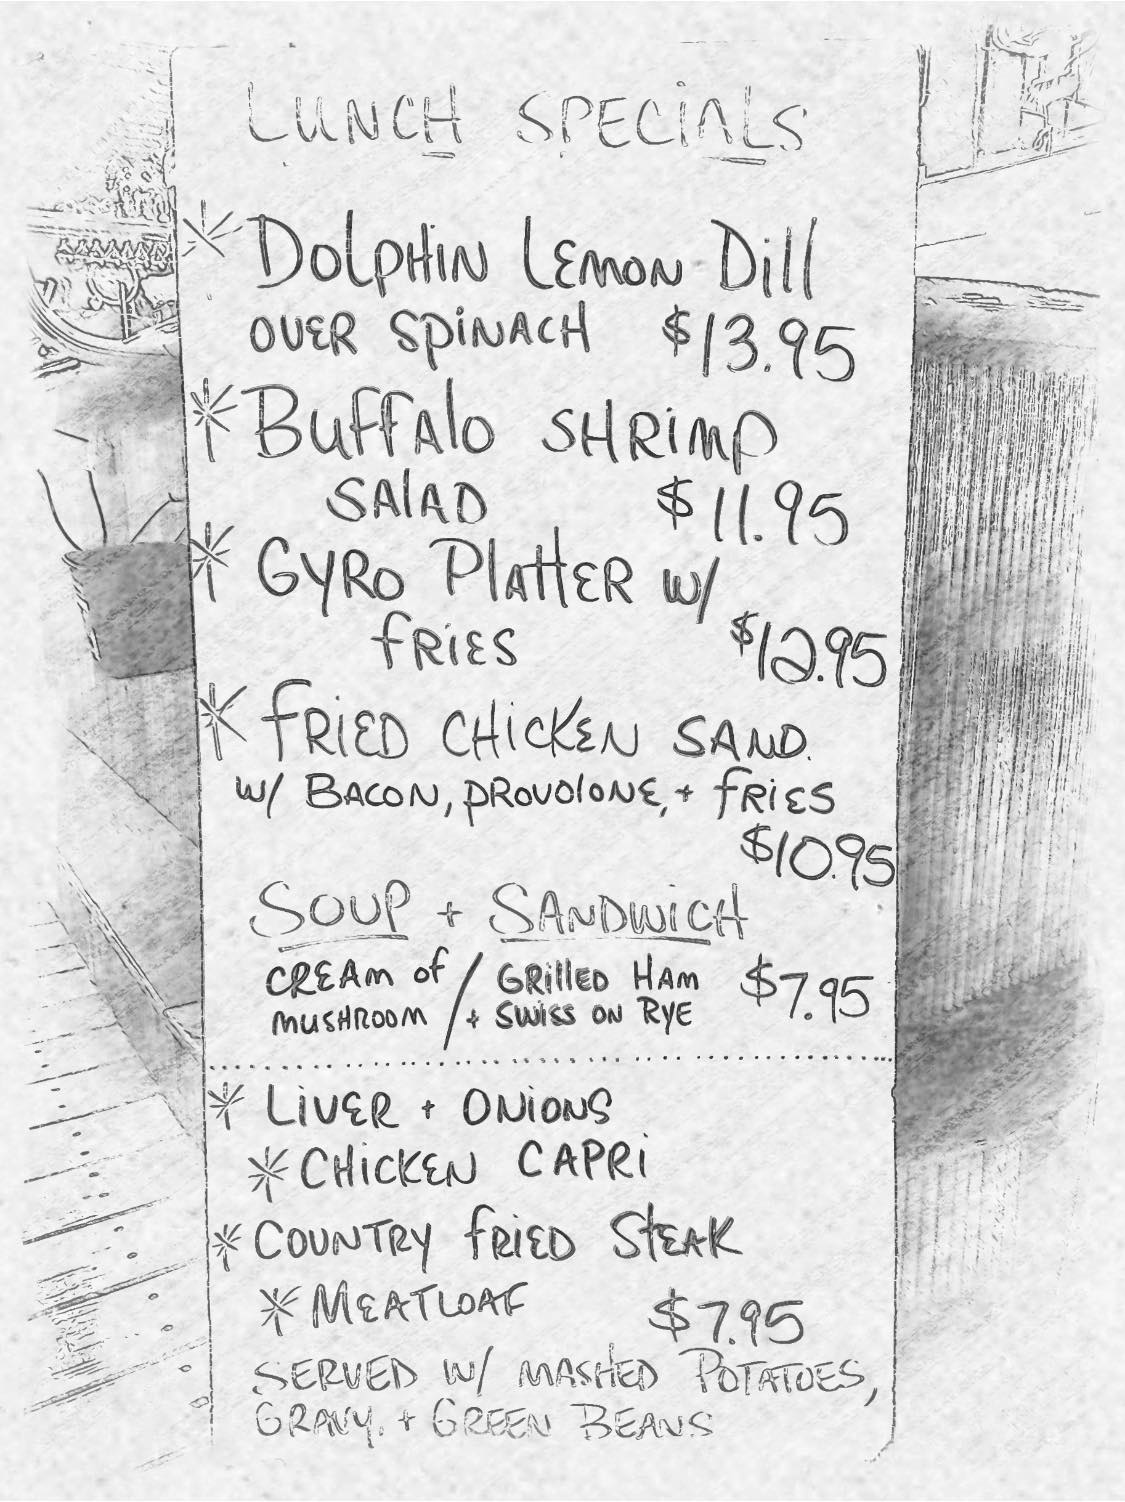 LUNCH SPECIALS
* DOLPHIN LEMON DILL
OVER SPINACH $13.95
* BUFFALO SHRIMP
SALAD $11.95
* GYRO PLATTER W/
FRIES $12.95
* FRIED CHICKEN SAND.
W/ BACON, PROVOLONE, + FRIES
$10.95
SOUP + SANDWICH
CREAM OF / GRILLED HAM $7.95
MUSHROOM / + SWISS ON RYE
* LIVER + ONIONS
* CHICKEN CAPRI
* COUNTRY FRIED STEAK
* MEATLOAF $7.95
SERVED W/ MASHED POTATOES,
GRAVY, + GREEN BEANS